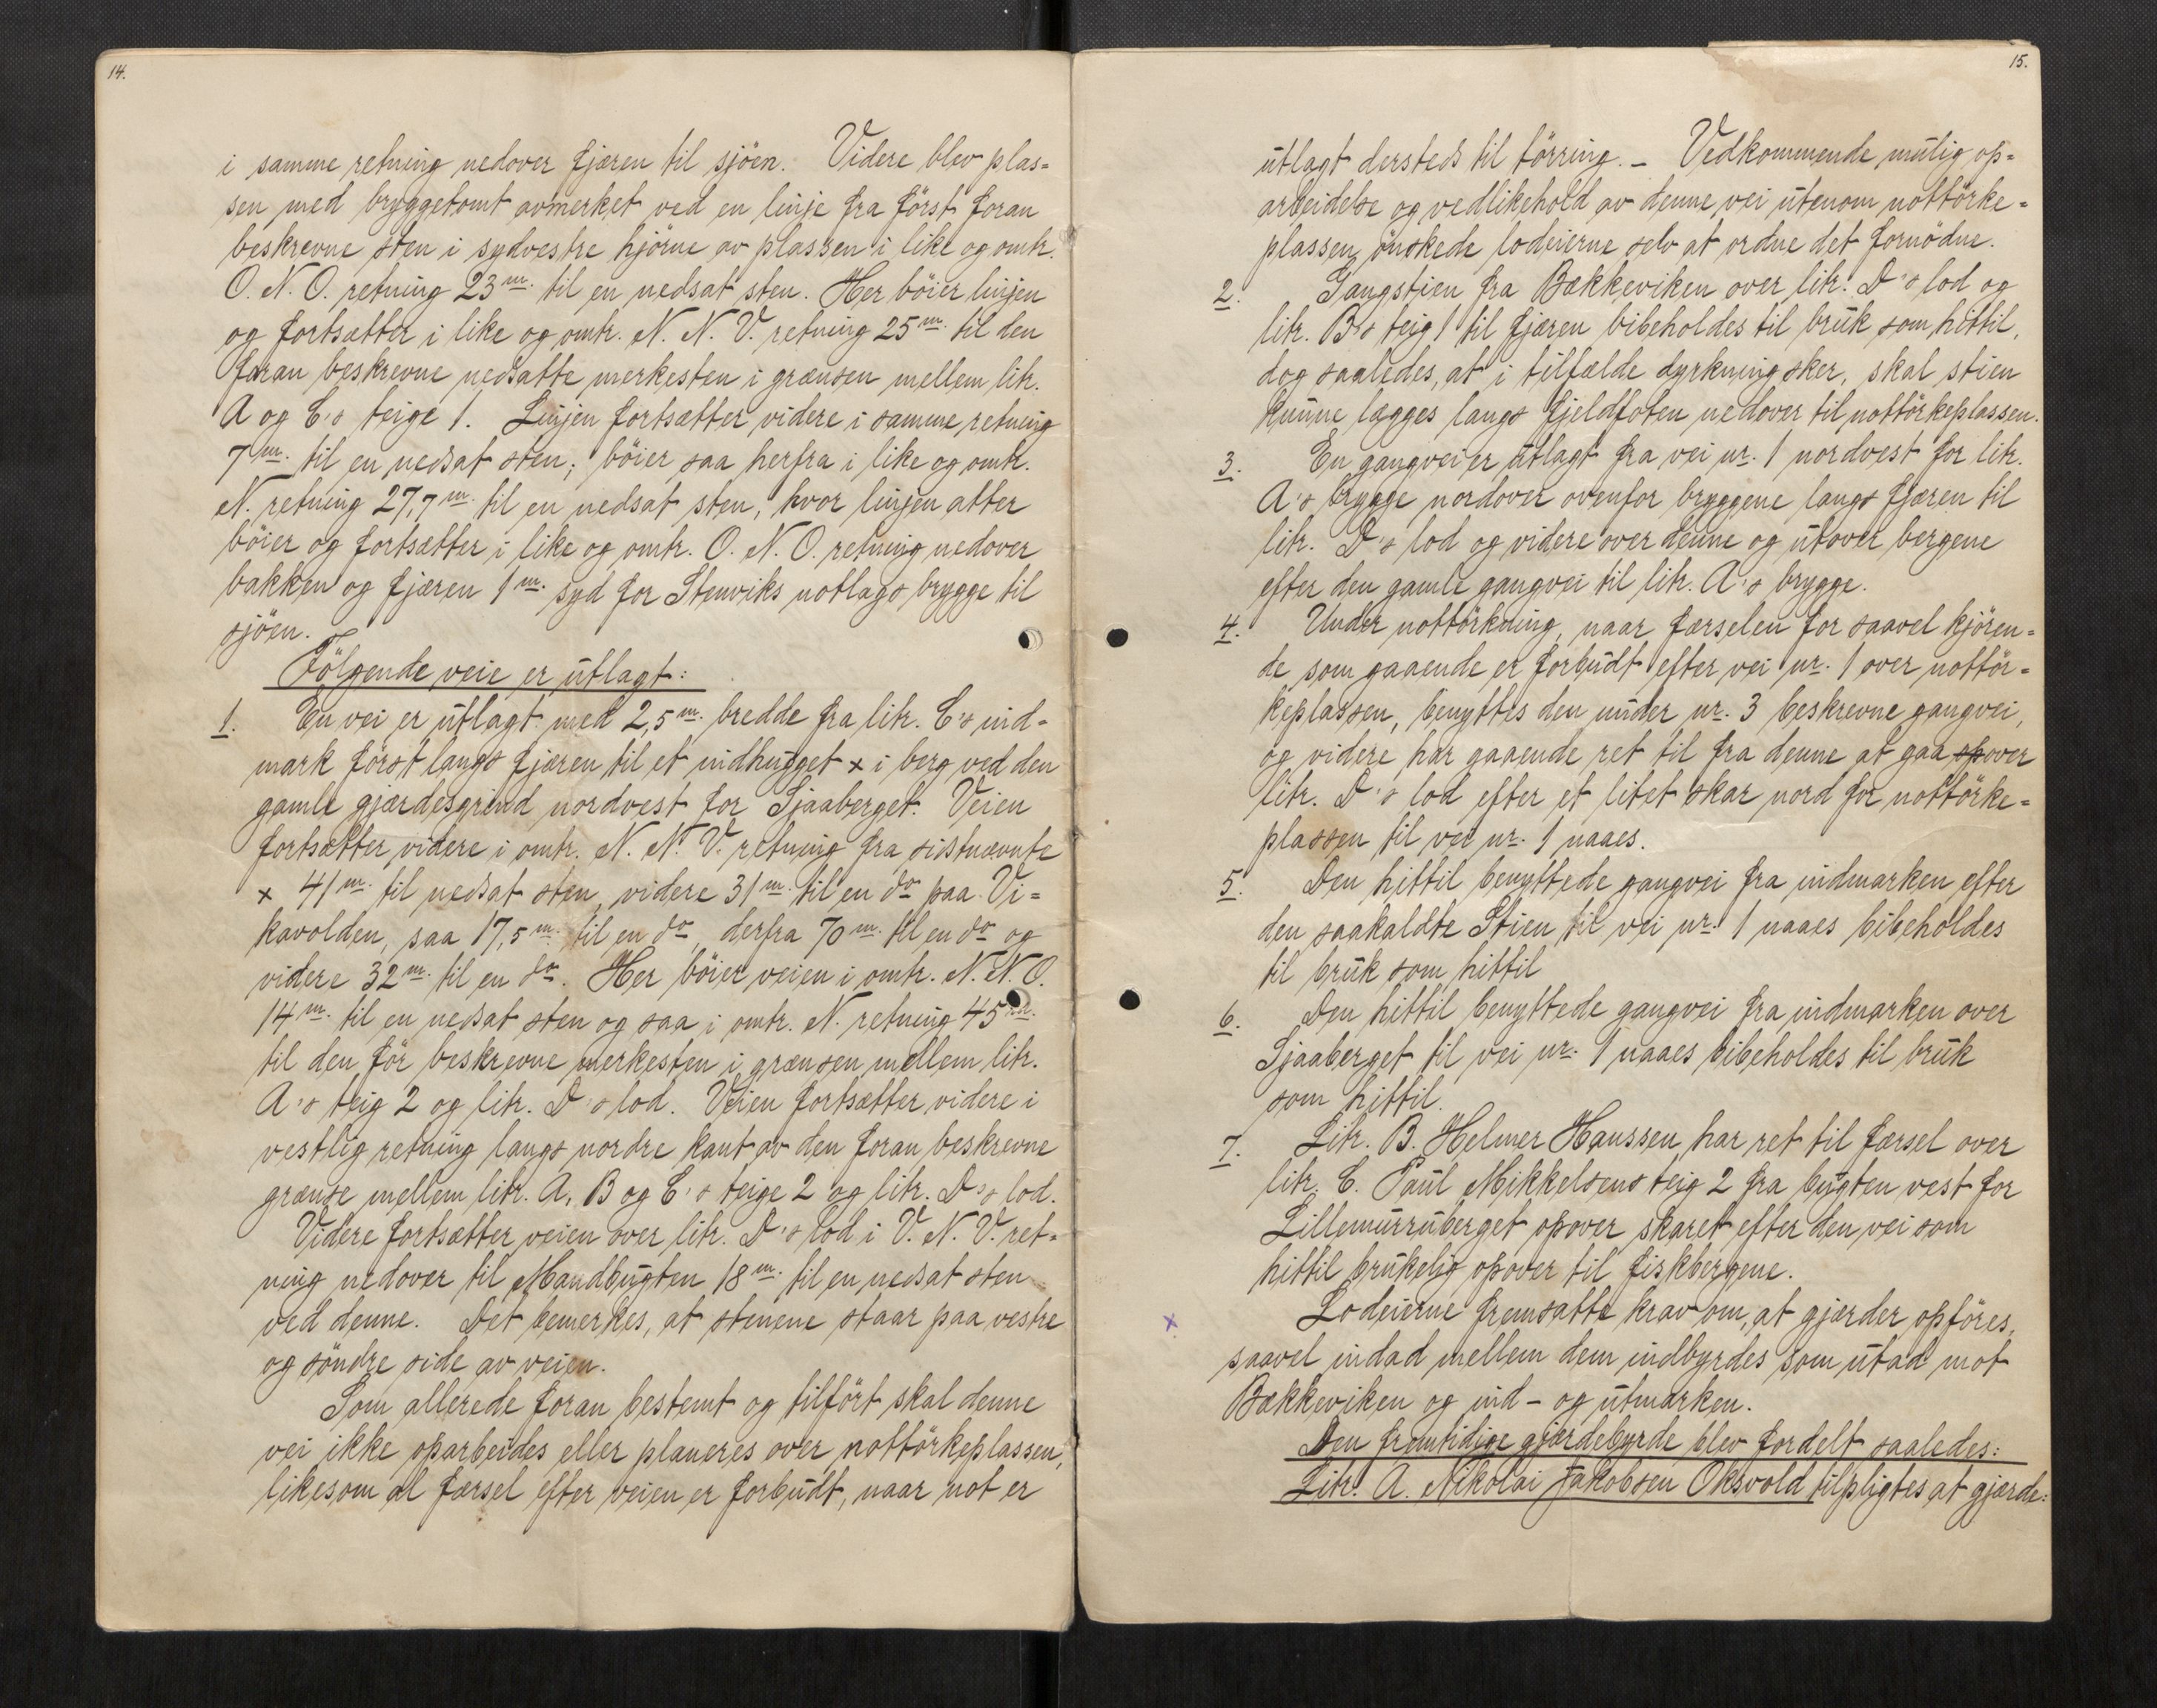 14.
i samme retning nedover fjæren til sjöen. Videre blev plas=
sen med bryggetomt avmerket ved en linje fra först foran
beskrevne sten i sydvestre hjörne av plassen i like og omtr.
O. N. O. retning 23 m. til en nedsat sten. Her böier linjen
og fortsætter i like og omtr. N. N. V. retning 25 m. til den
foran beskrevne nedsatte merkesten i grænsen mellem litr.
A og C's teige 1. Linjen fortsætter videre i samme retning
7 m. til en nedsat sten, böier saa herfra i like og omtr.
N. retning 27,7 m. til en nedsat sten, hvor linjen atter
böier og fortsætter i like og omtr. O. N. O. retning nedover
bakken og fjæren 1 m. syd for Stenviks notlags brygge til
sjöen.
Fölgende veie er utlagt:
1. En vei er utlagt med 2,5 m. bredde fra litr. C's ind=
mark först langs fjæren til et indhugget x i berg ved den
gamle gjærdesgrind nordvest for Sjaaberget. Veien
fortsætter videre i omtr. N. N. V. retning fra sistnævnte
x 41 m. til nedsat sten, videre 31 m. til en do paa Vi=
kavolden, saa 17,5 m. til en do, derfra 70 m. til en do og
videre 32 m. til en do. Her böier veien i omtr. N. N. O.
14 m. til en nedsat sten og saa i omtr. N. retning 45 m.
til den för beskrevne merkesten i grænsen mellem litr.
A's teig 2 og litr. D's lod. Veien fortsætter videre i
vestlig retning langs nordre kant av den foran beskrevne
grænse mellem litr. A, B og C's teige 2 og litr. D's lod.
Videre fortsætter veien over litr. D's lod i V. N. V. ret=
ning nedover til Mandbugten 18 m. til en nedsat sten
ved denne. Det bemerkes, at stenene staar paa vestre
og söndre side av veien.
Som allerede foran bestemt og tilfört skal denne
vei ikke oparbeides eller planeres over nottörkeplassen,
likesom al færsel efter veien er forbudt, naar not er
15.
utlagt dersteds til törring. – Vedkommende mulig op=
arbeidelse og vedlikehold av denne vei utenom nottörke=
plassen önskede lodeierne selv at ordne det fornödne.
2. Gangstien fra Bækkeviken over litr. D's lod og
litr. B's teig 1 til fjæren bibeholdes til bruk som hittil,
dog saaledes, at i tilfælde dyrkning sker, skal stien
kunne lægges langs fjeldfoten nedover til nottörkeplassen.
3. En gangvei er utlagt fra vei nr. 1 nordvest for litr.
A's brygge nordover ovenfor bryggene langs fjæren til
litr. D's lod og videre over denne og utover bergene
efter den gamle gangvei til litr. A's brygge.
4. Under nottörkning, naar færselen for saavel kjören=
de som gaaende er forbudt efter vei nr. 1 over nottör=
keplassen, benyttes den under nr. 3 beskrevne gangvei,
og videre har gaaende ret til fra denne at gaa opover
litr. D's lod efter et litet skar nord for nottörke=
plassen til vei nr. 1 naaes.
5. Den hittil benyttede gangvei fra indmarken efter
den saakaldte Stien til vei nr. 1 naaes bibeholdes
til bruk som hittil
6. Den hittil benyttede gangvei fra indmarken over
Sjaaberget til vei nr. 1 naaes bibeholdes til bruk
som hittil.
7. Litr. B. Helmer Hanssen har ret til færsel over
litr. C. Paul Mikkelsens teig 2 fra bugten vest for
Lillemurruberget opover skaret efter den vei som
hittil brukelig opover til fiskbergene.
x Lodeierne fremsatte krav om, at gjærder opföres,
saavel indad mellem dem indbyrdes som utad mot
Bækkeviken og ind- og utmarken.
Den fremtidige gjærdebyrde blev fordelt saaledes:
Litr. A. Nikolai Jakobsen Oksvold tilpligtes at gjærde: